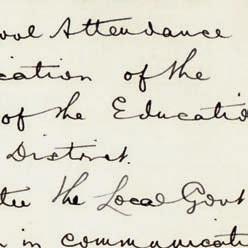 ool Attendance
cation of the
of the Educatio
District.
the Local Govt
in communicati